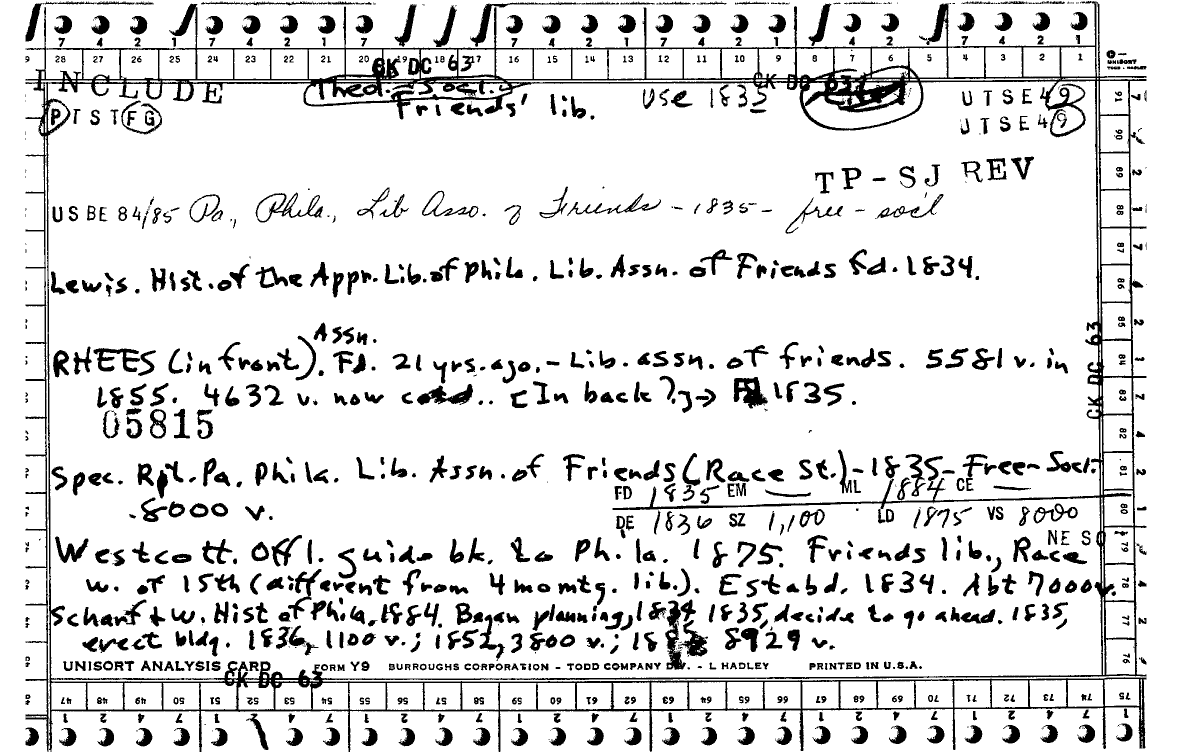 28 27 26 25 24 23 22 21 20 19 18 17 16 15 14 13 12 11 10 9 8 7 6 5 4 3 2 1
UNISORT
TODD - HADLEY
CK DC 63
CK DC 63
INCLUDE
Theol. - Socl.
Use 1835
UTSE49
PTSTFG
Friends' lib.
UTSE49
TP-SJ REV
USBE 84/85 Pa., Phila., Lib Asso. of Friends - 1835 - free - soc'l
Lewis. Hist. of the Appr. Lib. of Phila. Lib. Assn. of Friends fd. 1834.
Assn.
RHEES (in front). Fd. 21 yrs. ago. - Lib. assn. of friends. 5581 v. in
1855. 4632 v. now .. [In back?] → 1835.
05815
CK DC 63
Spec. Rpt. Pa. Phila. Lib. Assn. of Friends (Race St.) - 1835 - Free - Socl.
8000 v.
FD 1835 EM — ML 1884 CE —
DE 1836 SZ 1,100 LD 1875 VS 8000
NE SO
Westcott. Offl. guide bk. to Phila. 1875. Friends lib., Race
w. of 15th (different from 4 mo mtg. lib.). Estabd. 1834. Abt 7000 v.
Scharf & W. Hist of Phila, 1884. Began planning, 1834, 1835, decide to go ahead. 1835,
erect bldg. 1836, 1100 v.; 1852, 3800 v.; 8929 v.
UNISORT ANALYSIS CARD FORM Y9 BURROUGHS CORPORATION - TODD COMPANY DIV. - L HADLEY PRINTED IN U.S.A.
CK DC 63
47 48 49 50 51 52 53 54 55 56 57 58 59 60 61 62 63 64 65 66 67 68 69 70 71 72 73 74 75